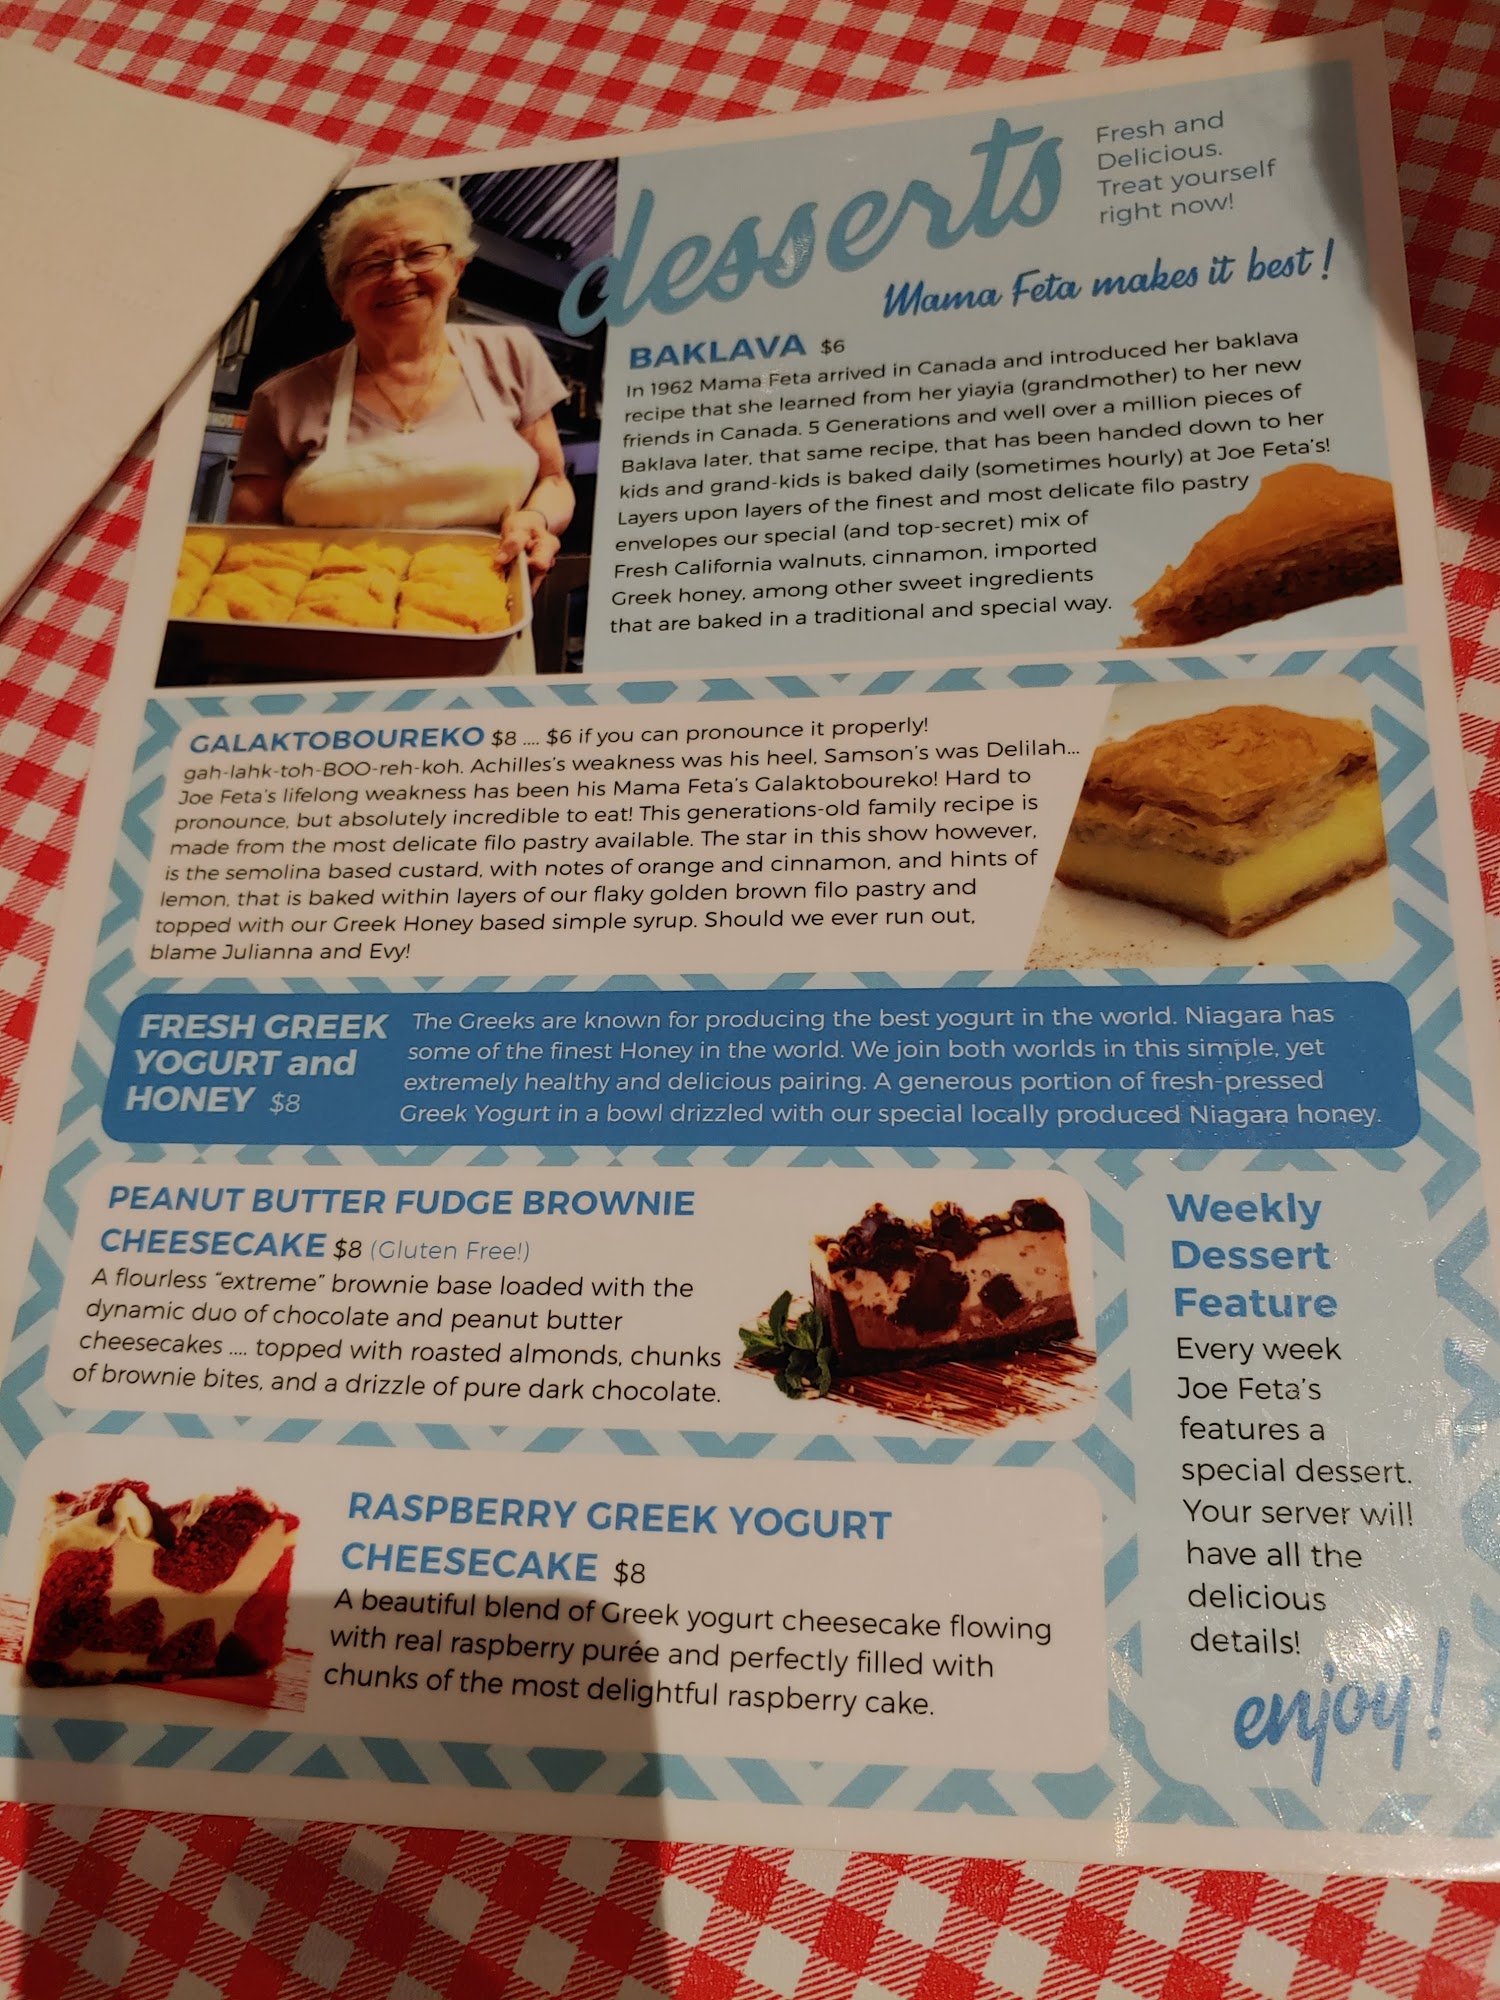 desserts
Fresh and
Delicious.
Treat yourself
right now!
Mama Feta makes it best!
BAKLAVA $6
In 1962 Mama Feta arrived in Canada and introduced her baklava
recipe that she learned from her yiayia (grandmother) to her new
friends in Canada. 5 Generations and well over a million pieces of
Baklava later, that same recipe, that has been handed down to her
kids and grand-kids is baked daily (sometimes hourly) at Joe Feta's!
Layers upon layers of the finest and most delicate filo pastry
envelopes our special (and top-secret) mix of
Fresh California walnuts, cinnamon, imported
Greek honey, among other sweet ingredients
that are baked in a traditional and special way.
GALAKTOBOUREKO $8 .... $6 if you can pronounce it properly!
gah-lahk-toh-BOO-reh-koh. Achilles's weakness was his heel, Samson's was Delilah...
Joe Feta's lifelong weakness has been his Mama Feta's Galaktoboureko! Hard to
pronounce, but absolutely incredible to eat! This generations-old family recipe is
made from the most delicate filo pastry available. The star in this show however,
is the semolina based custard, with notes of orange and cinnamon, and hints of
lemon, that is baked within layers of our flaky golden brown filo pastry and
topped with our Greek Honey based simple syrup. Should we ever run out,
blame Julianna and Evy!
FRESH GREEK
YOGURT and
HONEY $8
The Greeks are known for producing the best yogurt in the world. Niagara has
some of the finest Honey in the world. We join both worlds in this simple, yet
extremely healthy and delicious pairing. A generous portion of fresh-pressed
Greek Yogurt in a bowl drizzled with our special locally produced Niagara honey.
PEANUT BUTTER FUDGE BROWNIE
CHEESECAKE $8 (Gluten Free!)
A flourless "extreme" brownie base loaded with the
dynamic duo of chocolate and peanut butter
cheesecakes .... topped with roasted almonds, chunks
of brownie bites, and a drizzle of pure dark chocolate.
RASPBERRY GREEK YOGURT
CHEESECAKE $8
A beautiful blend of Greek yogurt cheesecake flowing
with real raspberry purée and perfectly filled with
chunks of the most delightful raspberry cake.
Weekly
Dessert
Feature
Every week
Joe Feta's
features a
special dessert.
Your server will
have all the
delicious
details!
enjoy!